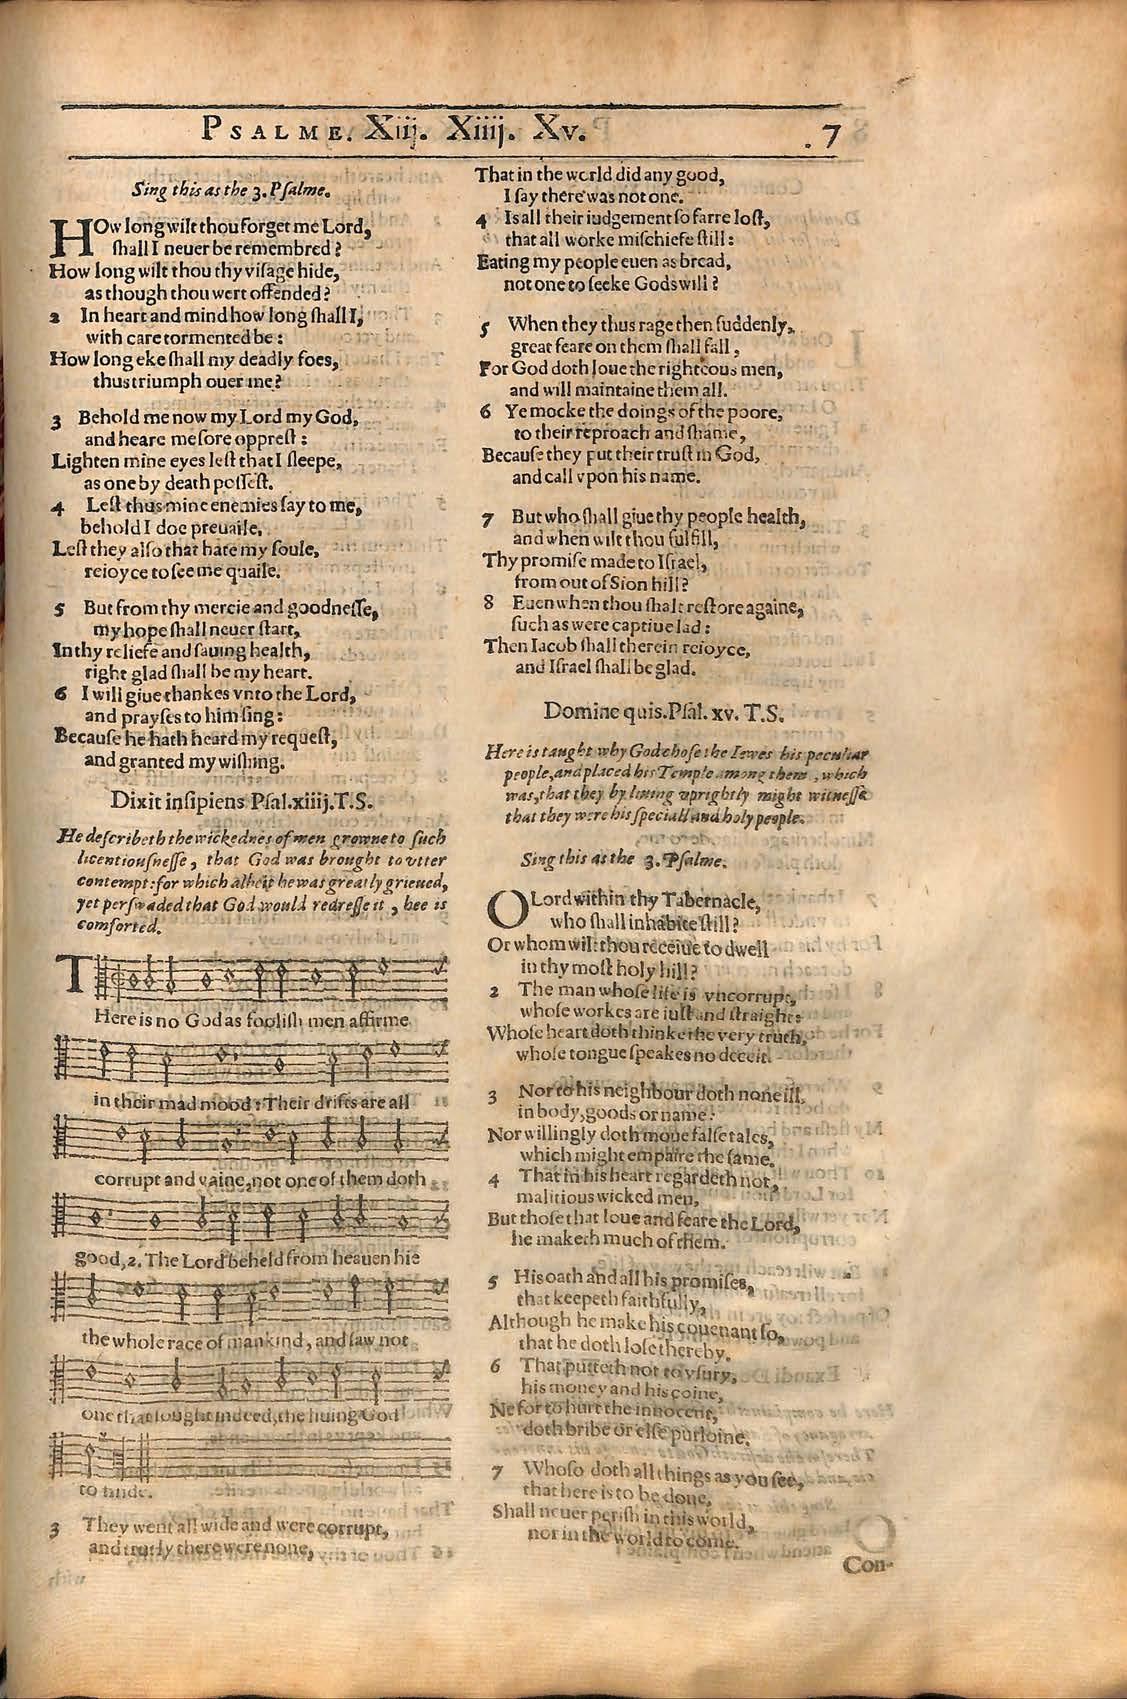 PSALME. Xiij. Xiiij. Xv.
7
Sing this as the 3. Psalme.
HOw long wilt thou forget me Lord,
shall I neuer be remembred?
How long wilt thou thy visage hide,
as though thou wert offended?
2 In heart and mind how long shall I,
with care tormented be:
How long eke shall my deadly foes,
thus triumph ouer me?
3 Behold me now my Lord my God,
and heare me sore opprest:
Lighten mine eyes lest that I sleepe,
as one by death possest.
4 Lest thus mine enemies say to me,
behold I doe preuaile,
Lest they also that hate my soule,
reioyce to see me quaile.
5 But from thy mercie and goodnesse,
my hope shall neuer start,
In thy reliefe and sauing health,
right glad shall be my heart.
6 I will giue thankes vnto the Lord,
and prayses to him sing:
Because he hath heard my request,
and granted my wishing.
Dixit insipiens Psal.xiiij.T.S.
He describeth the wickednes of men growne to such
licentiousnesse, that God was brought to vtter
contempt: for which albeit he was greatly grieued,
yet perswaded that God would redresse it, hee is
comforted.
THere is no God as foolish men affirme
in their mad mood: Their drifts are all
corrupt and vaine, not one of them doth
good, 2. The Lord beheld from heauen hie
the whole race of mankind, and saw not
one that sought indeed, the liuing God
to finde.
3 They went all wide and were corrupt,
and truely there were none,
That in the world did any good,
I say there was not one.
4 Is all their iudgement so farre lost,
that all worke mischiefe still:
Eating my people euen as bread,
not one to seeke Gods will?
5 When they thus rage then suddenly,
great feare on them shall fall,
For God doth loue the righteous men,
and will maintaine them all.
6 Ye mocke the doings of the poore,
to their reproach and shame,
Because they put their trust in God,
and call vpon his name.
7 But who shall giue thy people health,
and when wilt thou fulfill,
Thy promise made to Israel,
from out of Sion hill?
8 Euen when thou shalt restore againe,
such as were captiue lad:
Then Iacob shall therein reioyce,
and Israel shall be glad.
Domine quis.Psal. xv. T.S.
Here is taught why God chose the Iewes his peculiar
people, and placed his Temple among them, which
was, that they by liuing vprightly might witnesse
that they were his speciall and holy people.
Sing this as the 3. Psalme.
O Lord within thy Tabernacle,
who shall inhabite still?
Or whom wilt thou receiue to dwell
in thy most holy hill?
2 The man whose life is vncorrupt,
whose workes are iust and straight:
Whose heart doth thinke the very truth,
whose tongue speakes no deceit.
3 Nor to his neighbour doth none ill,
in body, goods or name:
Nor willingly doth moue false tales,
which might empaire the same.
4 That in his heart regardeth not,
malitious wicked men,
But those that loue and feare the Lord,
he maketh much of them.
5 His oath and all his promises,
that keepeth faithfully,
Although he make his couenant so,
that he doth lose thereby.
6 That putteth not to vsury,
his money and his coine,
Ne for to hurt the innocent,
doth bribe or else purloine.
7 Whoso doth all things as you see,
that here is to be done,
Shall neuer perish in this world,
nor in the world to come.
Con-